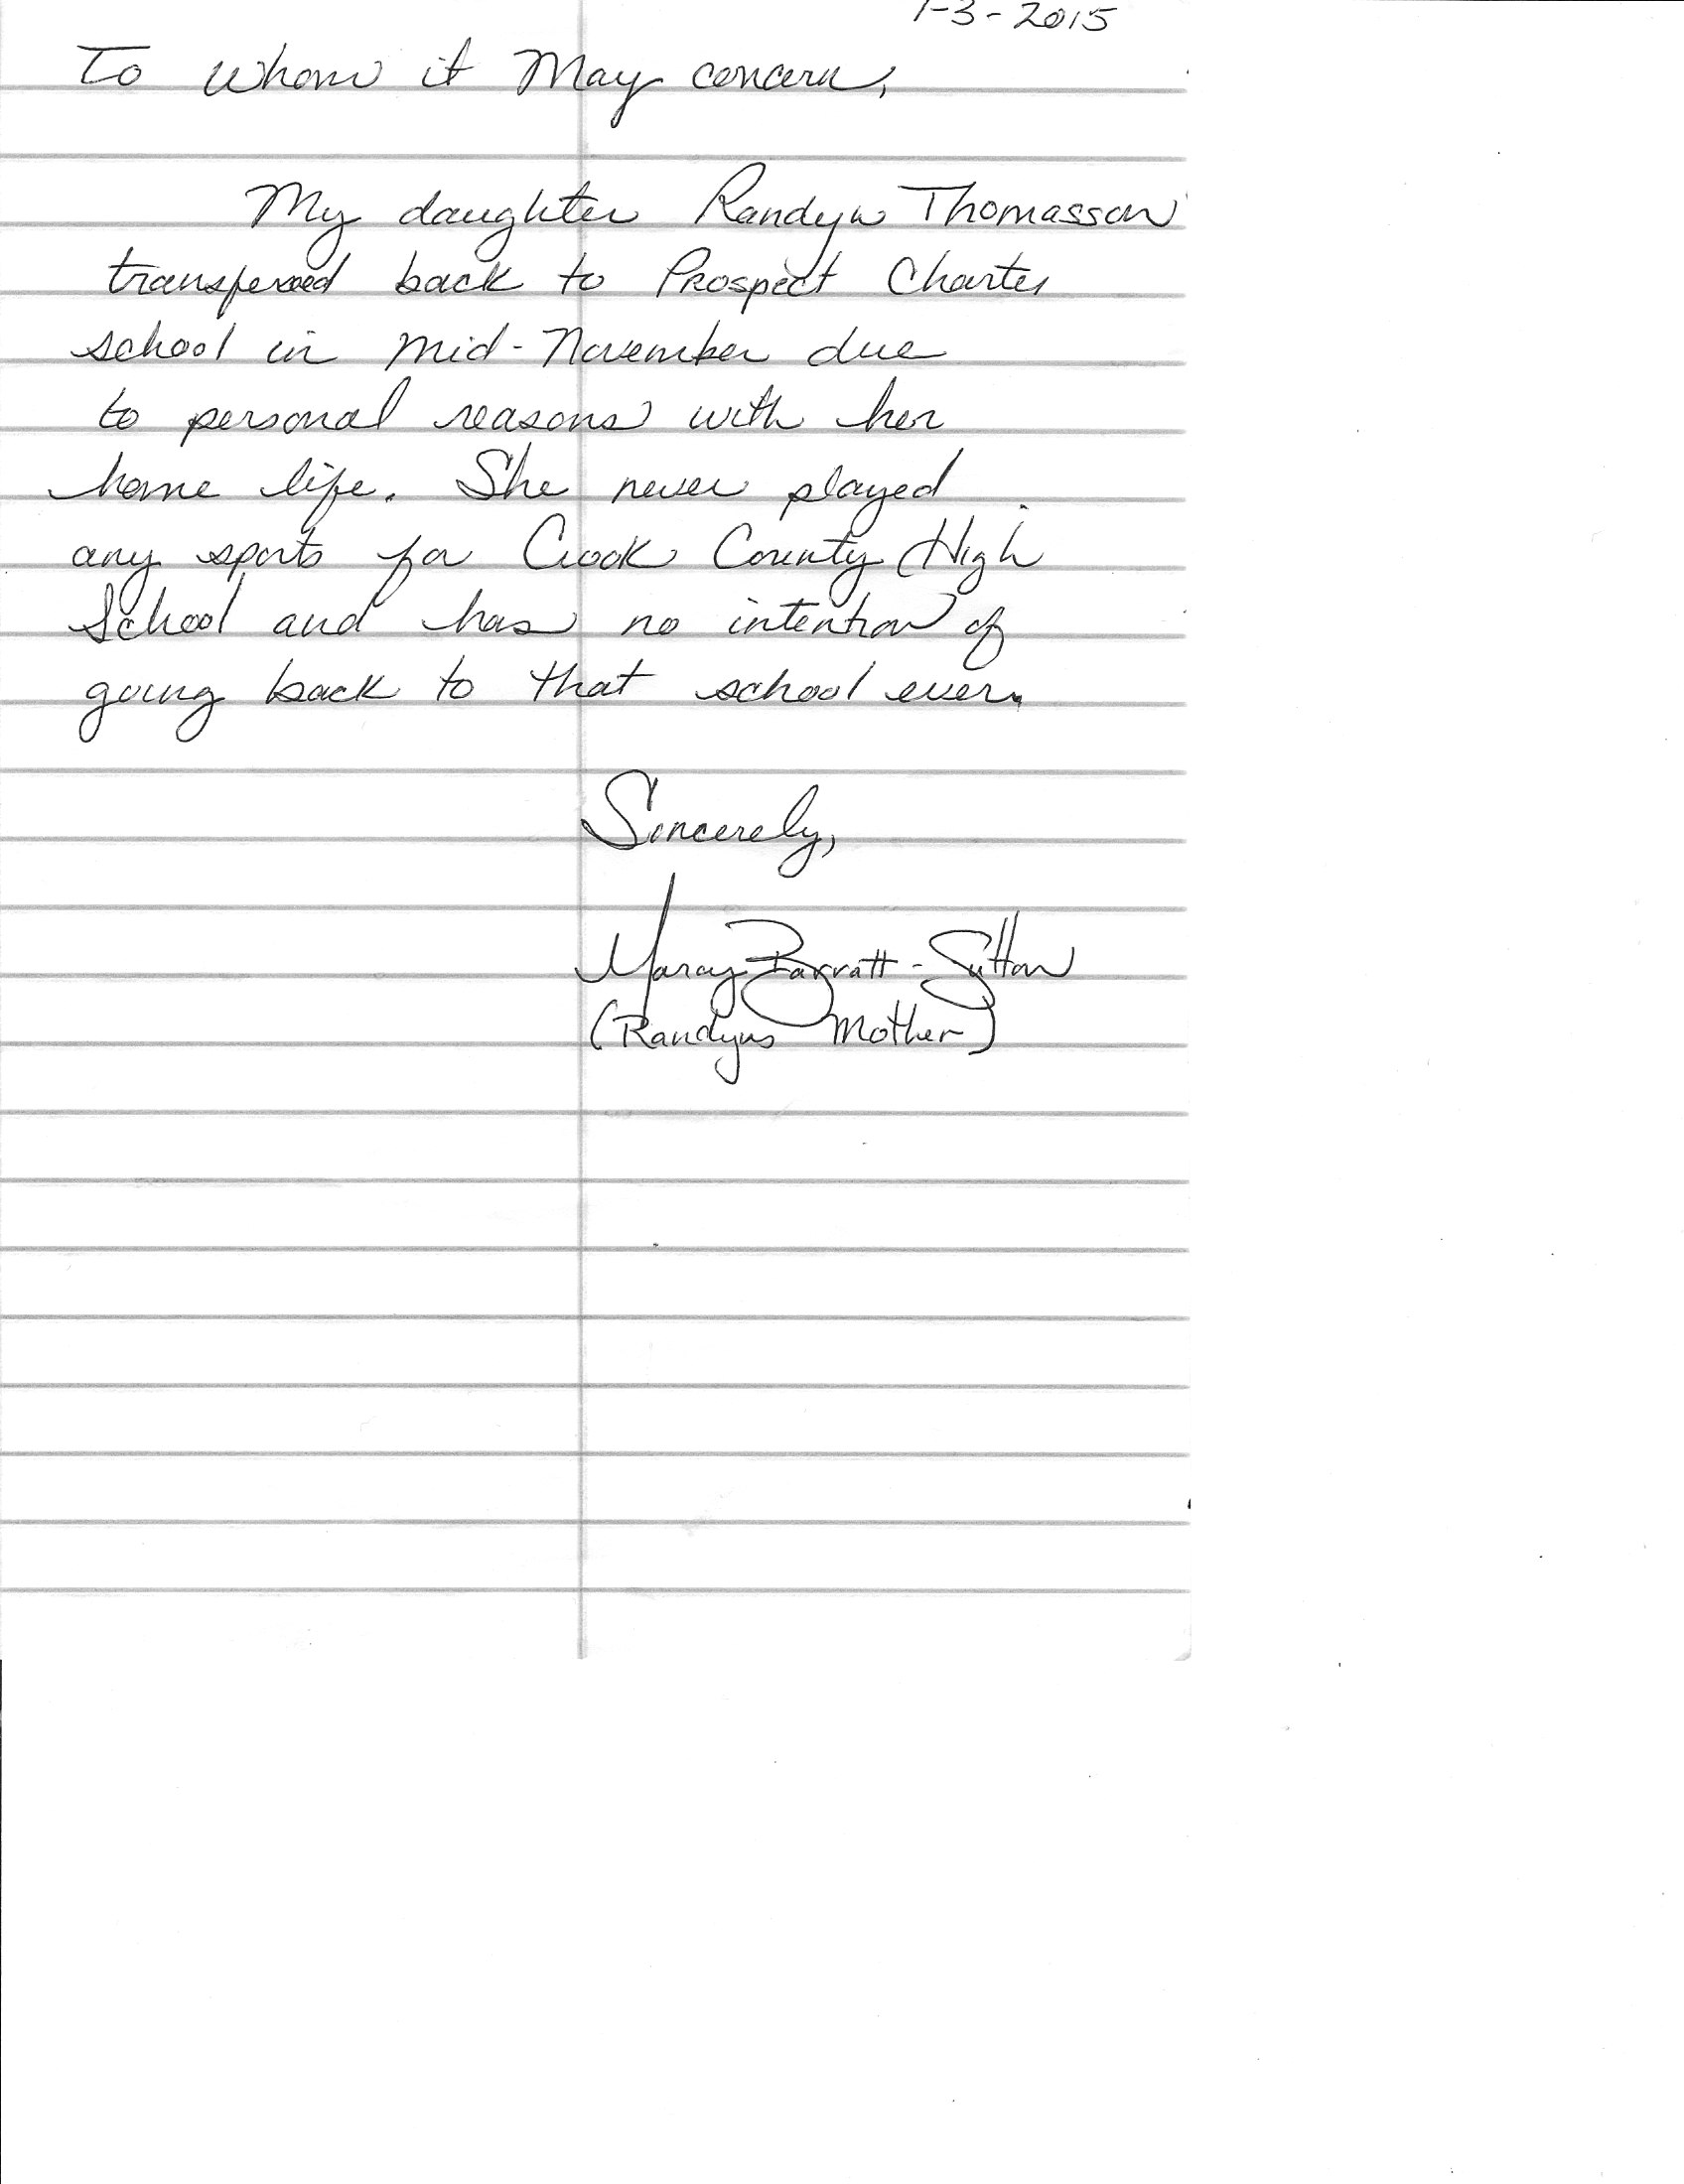 1-3-2015
To whom it May concern,
My daughter Randyn Thomasson
transfered back to Prospect Charter
school in mid-November due
to personal reasons with her
home life. She never played
any sports for Crook County High
School and has no intention of
going back to that school ever.
Sincerely,
Barratt-Sutton
(Randyns Mother)